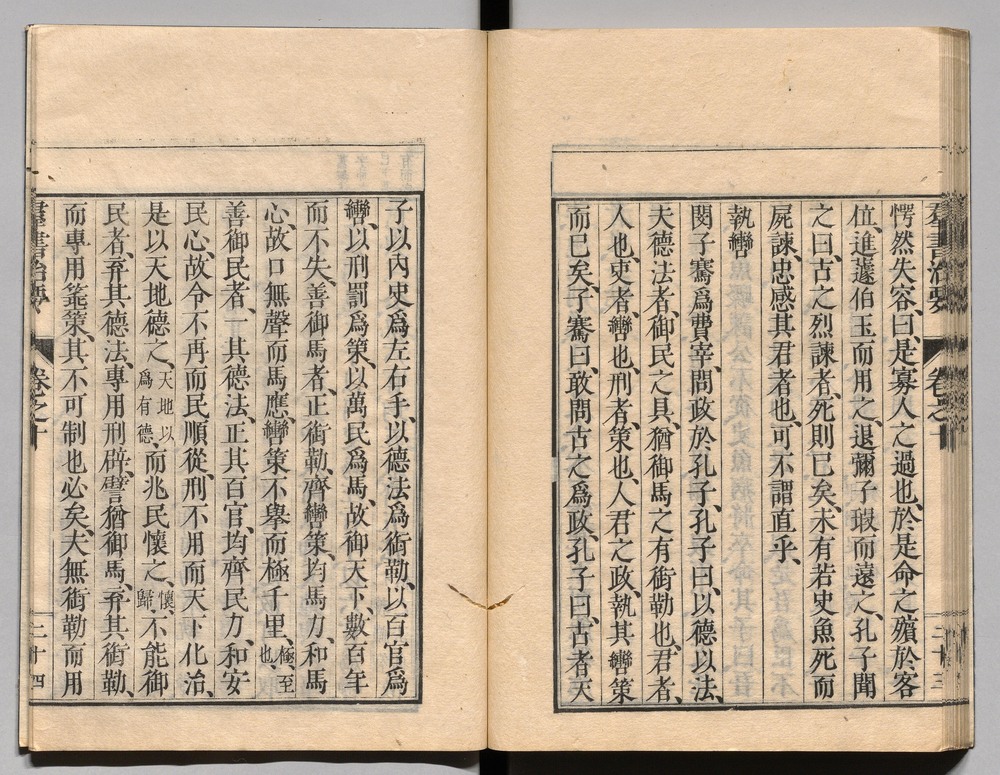 愕然失容、曰、是寡人之過也、於是命之殯於客
位、進蘧伯玉而用之、退彌子瑕而遠之、孔子聞
之曰、古之烈諫者、死則已矣、未有若史魚死而
屍諫、忠感其君者也、可不謂直乎、
執轡
閔子騫爲費宰、問政於孔子、孔子曰、以德以法、
夫德法者、御民之具、猶御馬之有銜勒也、君者、
人也、吏者、轡也、刑者、策也、人君之政、執其轡策
而已矣、子騫曰、敢問古之爲政、孔子曰、古者天
羣書治要
卷之十
二十三
子以內史爲左右手、以德法爲銜勒、以百官爲
轡、以刑罰爲策、以萬民爲馬、故御天下、數百年
而不失、善御馬者、正銜勒、齊轡策、均馬力、和馬
心、故口無聲而馬應轡策不舉而極千里、極、至也、
善御民者、一其德法、正其百官、均齊民力、和安
民心、故令不再而民順從、刑不用而天下化治、
是以天地德之、天地以爲有德、而兆民懷之、懷、歸、不能御
民者、弃其德法、專用刑辟、譬猶御馬、弃其銜勒、
而專用箠策、其不可制也必矣、夫無銜勒而用
羣書治要
卷之十
二十四